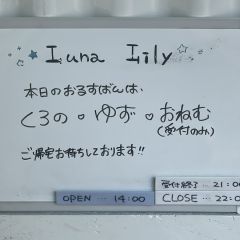 Luna Lily
本日のおるすばんは、
くろの・ゆず・おねむ
(受付のみ)
ご帰宅お待ちしております!!
受付終了…21:0
OPEN … 14:00
CLOSE … 22:0